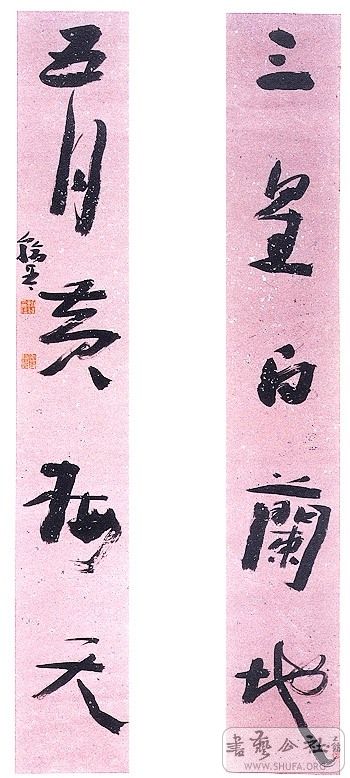 三星白蘭地
五月黃梅天
書藝公社
WWW.SHUFA.ORG